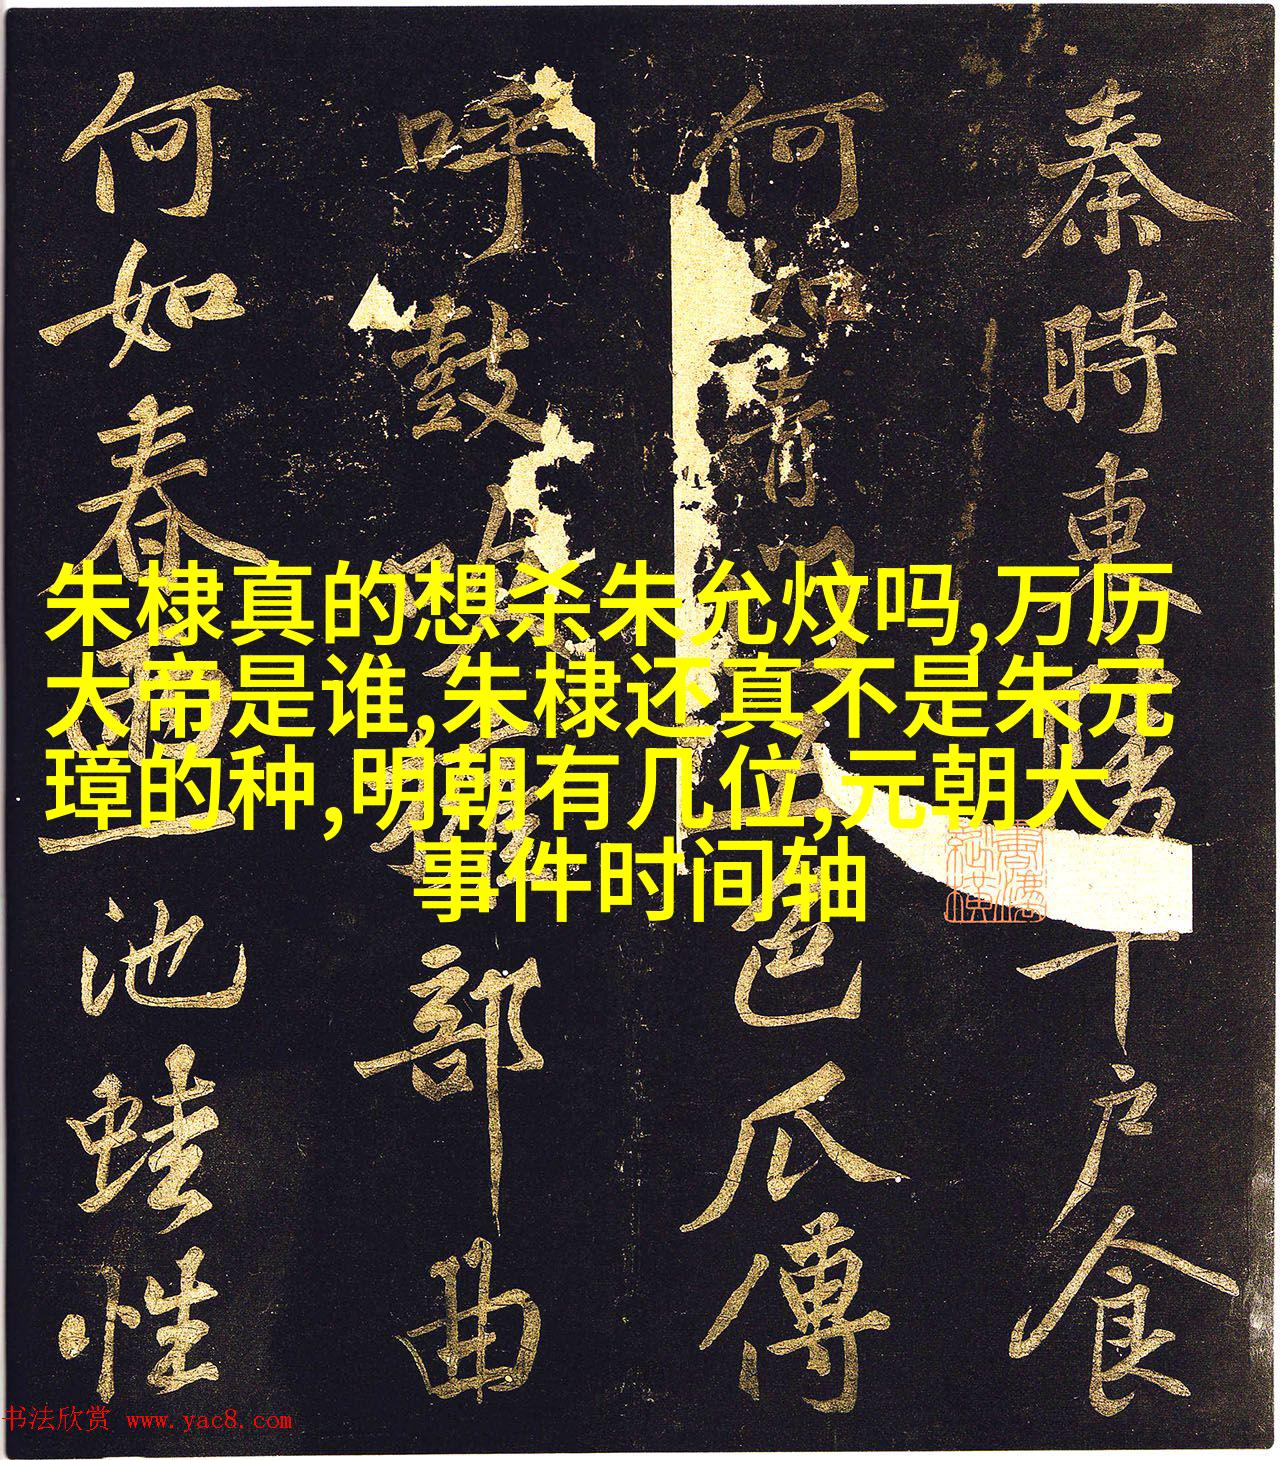 朱棣真的想杀朱允炆吗,万历
大帝是谁,朱棣还真不是朱元
璋的种,明朝有几位,元朝大
事件时间轴
秦時東陵千戶食
何如青門五色瓜傳
呼鼓吹部曲
何如春雨一池蛙性
书法欣赏 www.yac8.com